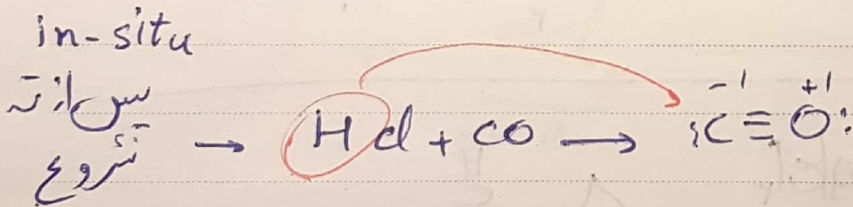 in-situ
پس از
شروع → HCl + CO → :C⁻¹≡O⁺¹: